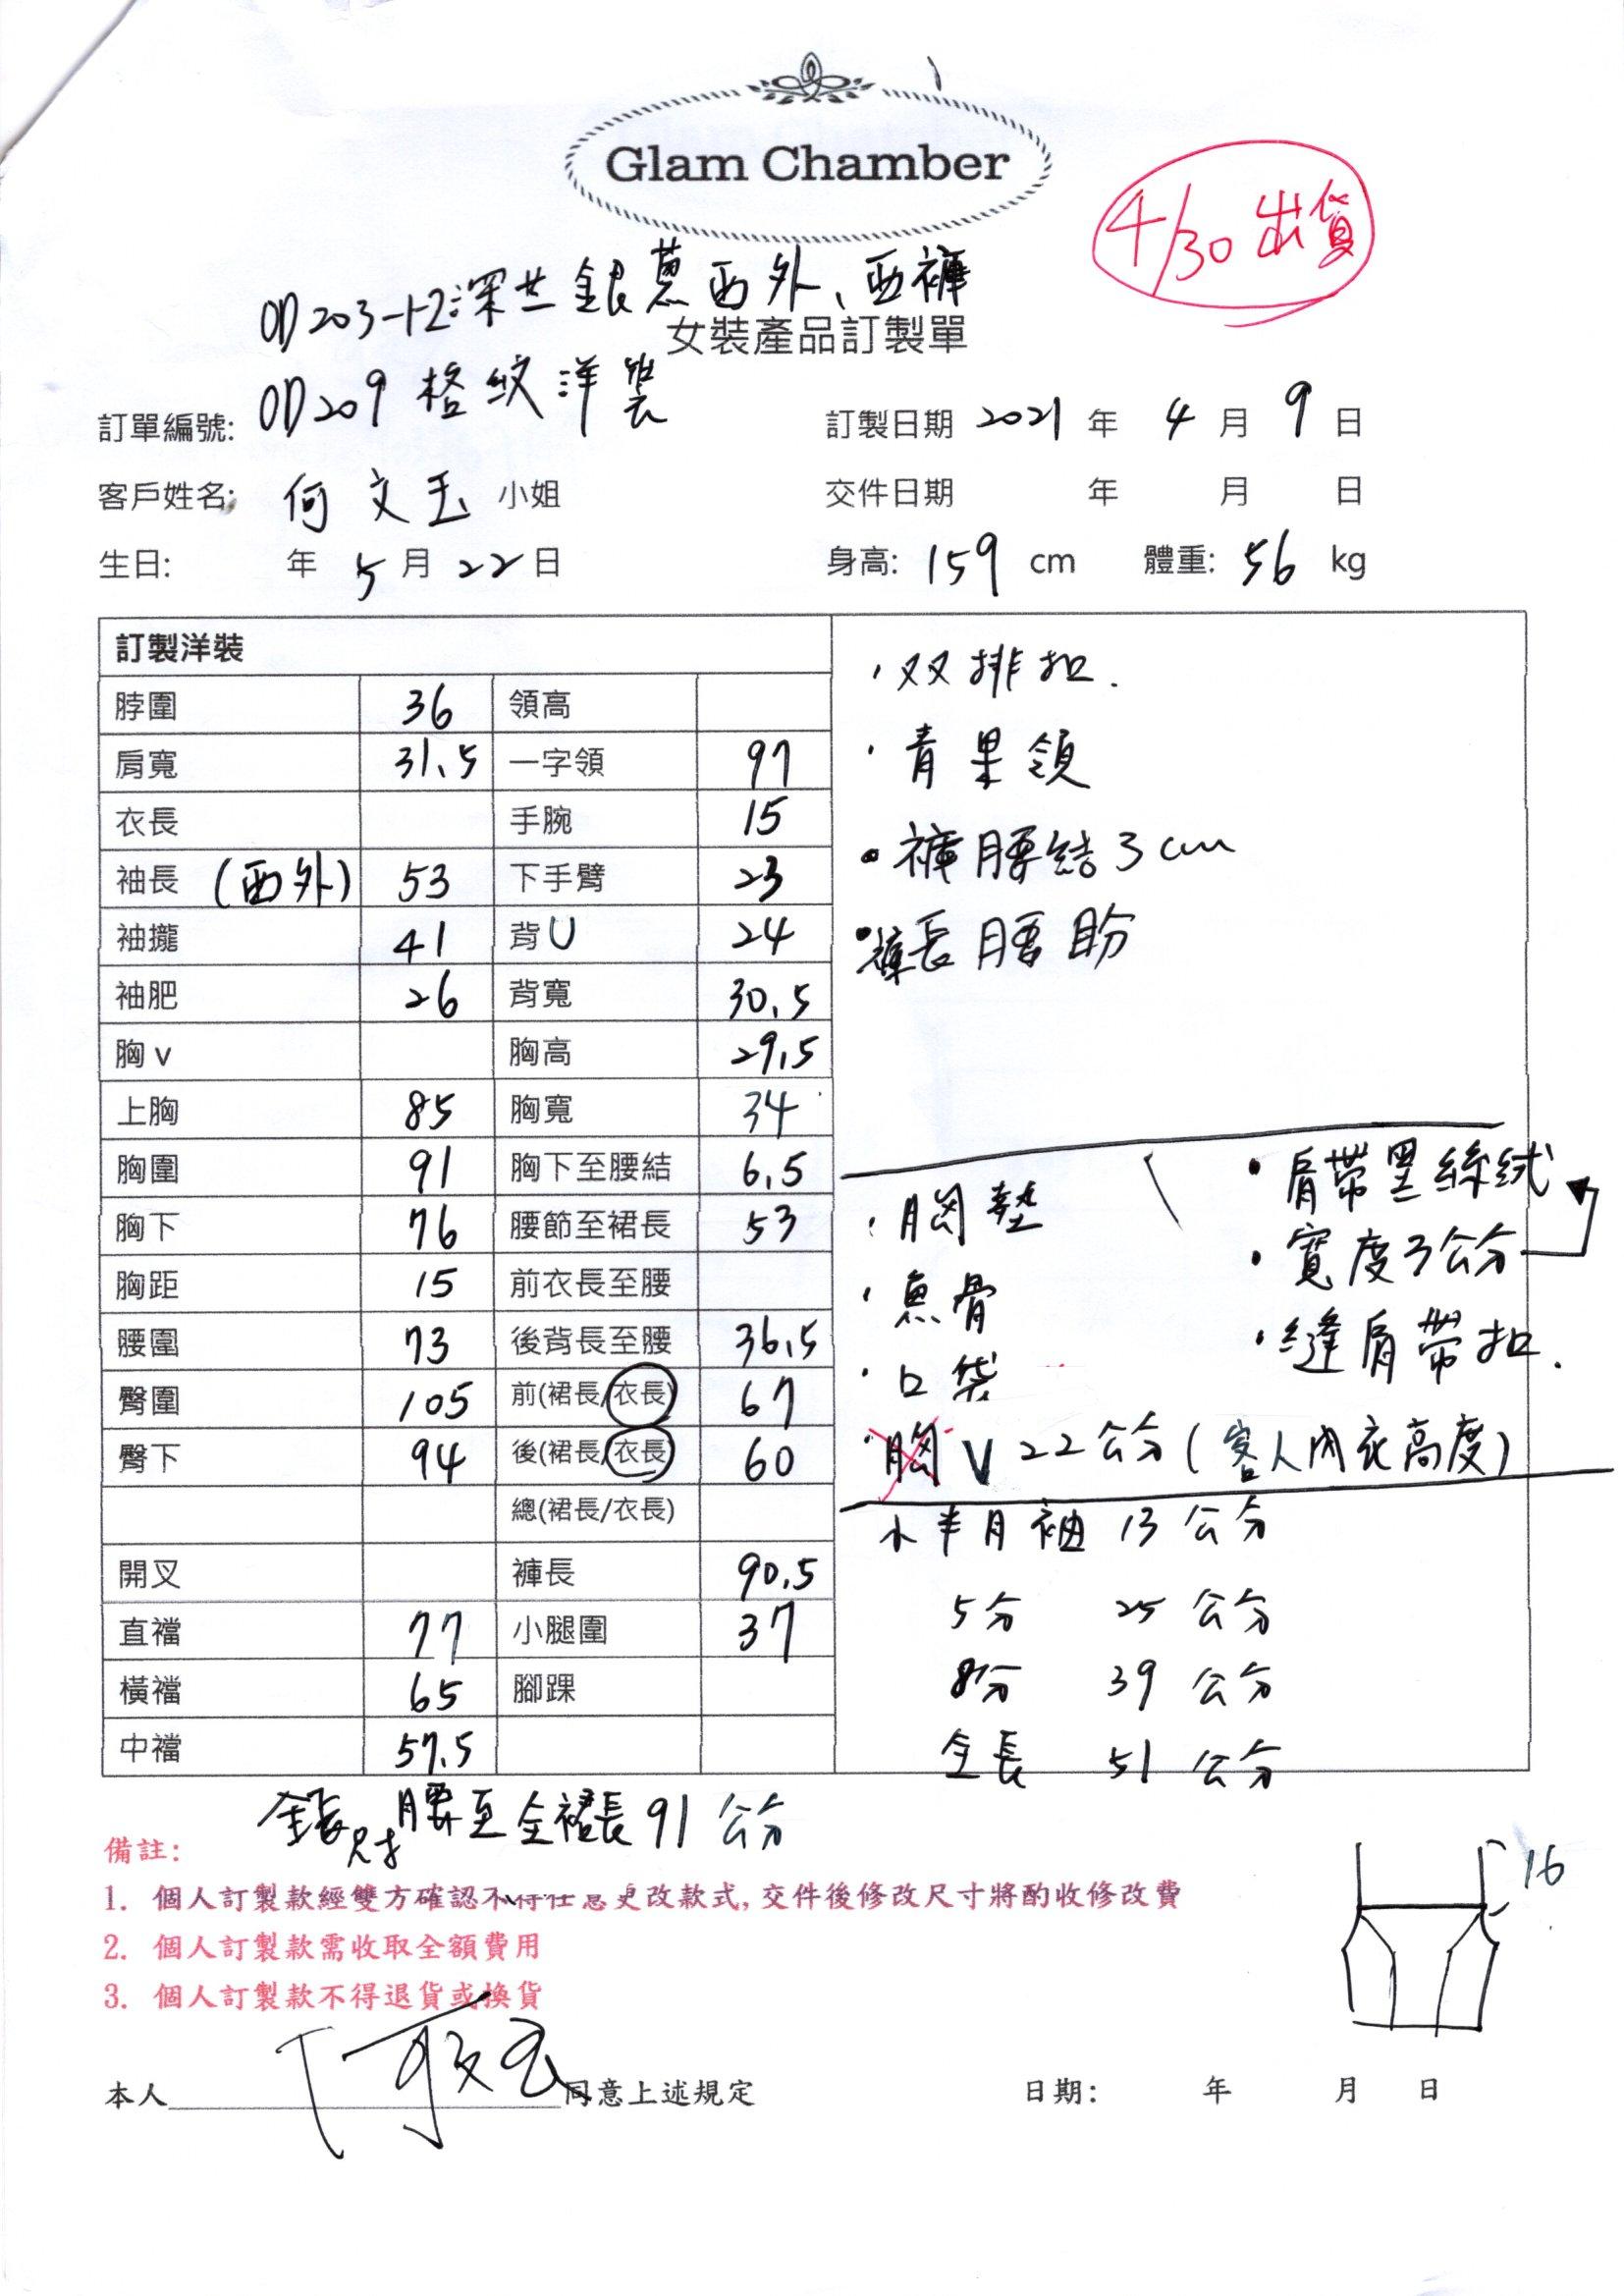 Glam Chamber
4/30 出貨
OD203-12深藍銀蔥西外、西褲
女裝產品訂製單
OD209 格紋洋裝
訂單編號: 訂製日期 2021 年 4 月 9 日
客戶姓名: 何文玉 小姐 交件日期 年 月 日
生日: 年 5 月 22 日 身高: 159 cm 體重: 56 kg
訂製洋裝
脖圍 36 領高
肩寬 31.5 一字領 97
衣長 手腕 15
袖長 (西外) 53 下手臂 23
袖攏 41 背U 24
袖肥 26 背寬 30.5
胸v 胸高 29.5
上胸 85 胸寬 34
胸圍 91 胸下至腰結 6.5
胸下 76 腰節至裙長 53
胸距 15 前衣長至腰
腰圍 73 後背長至腰 36.5
臀圍 105 前(裙長/衣長) 67
臀下 94 後(裙長/衣長) 60
總(裙長/衣長)
開叉 褲長 90.5
直襠 77 小腿圍 37
橫襠 65 腳踝
中襠 57.5
·双排扣.
·青果領
·褲腰結3cm
·褲長腰
·肩帶黑絲絨
·寬度3公分
·縫肩帶扣.
·胸墊
·魚骨
·口袋
·胸V 22公分(客人內衣高度)
小半月袖 13 公分
5分 25 公分
8分 39 公分
全長 51 公分
腰至全裙長91公分
16
備註:
1. 個人訂製款經雙方確認不得任意更改款式, 交件後修改尺寸將酌收修改費
2. 個人訂製款需收取全額費用
3. 個人訂製款不得退貨或換貨
本人 何文玉 同意上述規定 日期: 年 月 日